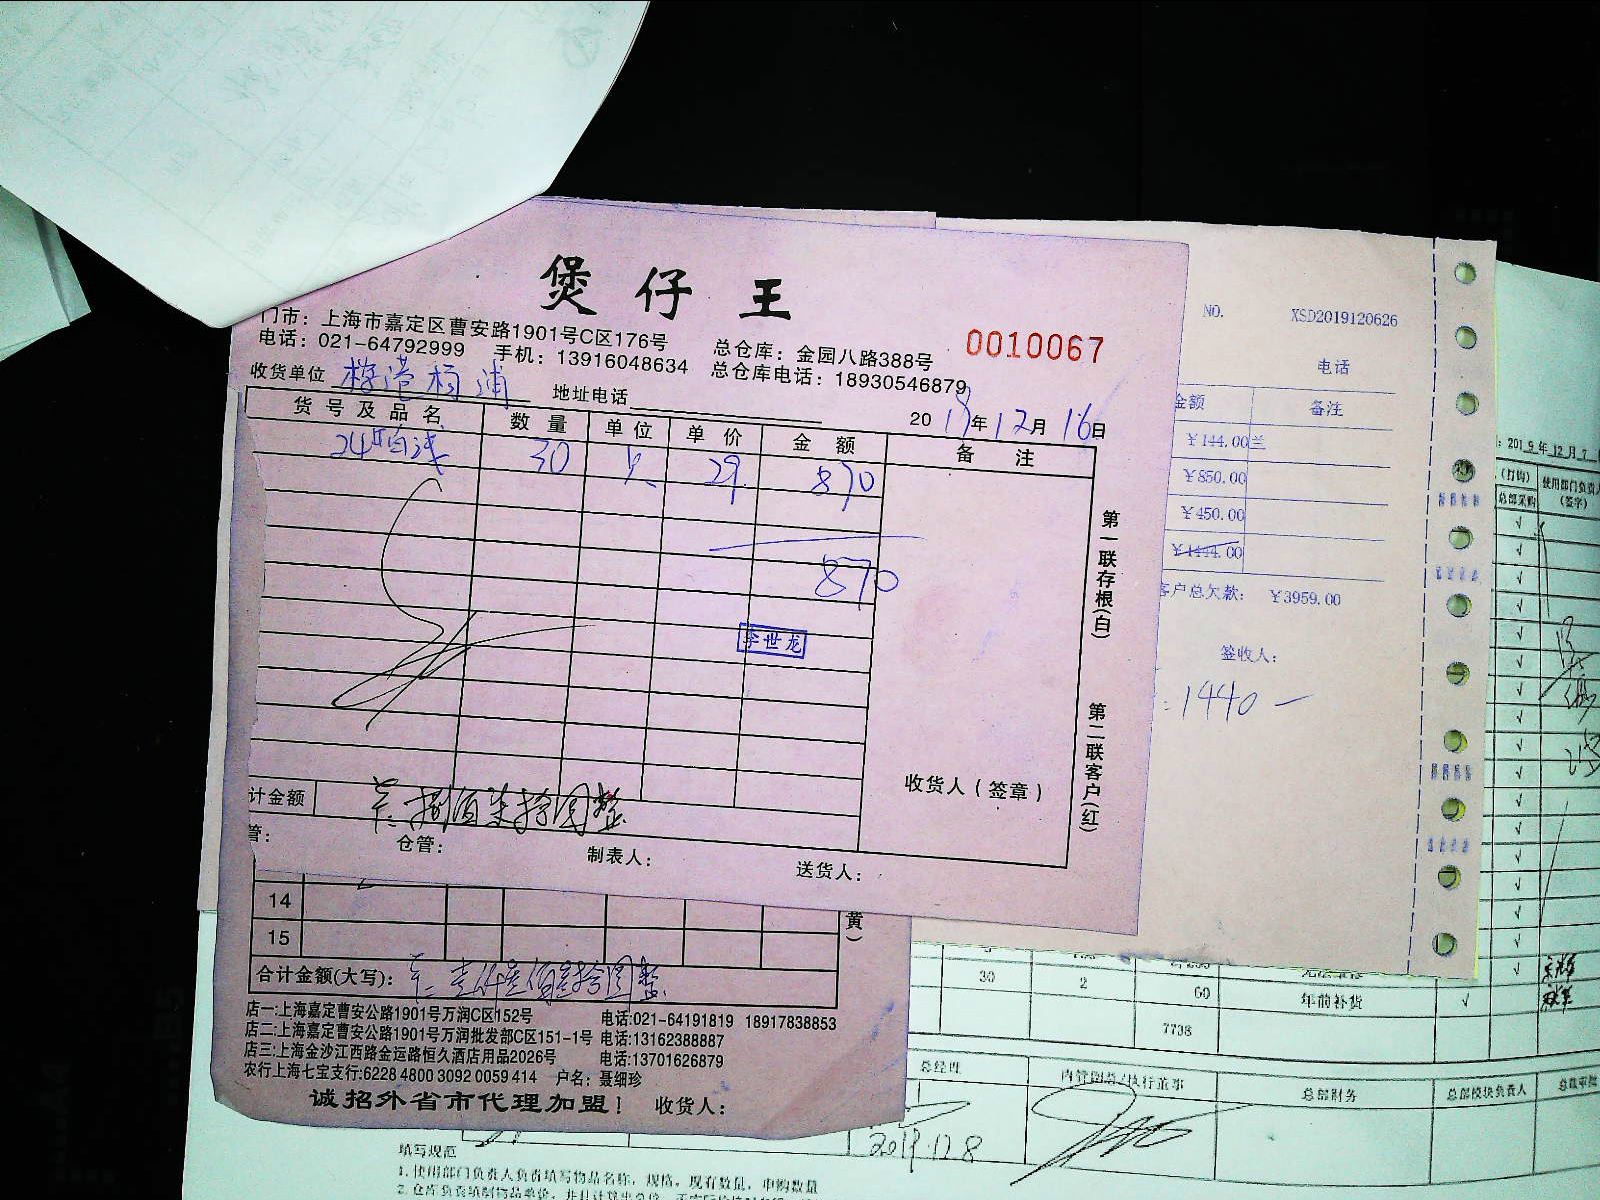 煲仔王
门市：上海市嘉定区曹安路1901号C区176号 总仓库：金园八路388号
0010067
电话：021-64792999 手机：13916048634 总仓库电话：18930546879
收货单位 地址电话
2019年12月16日
货号及品名 数量 单位 单价 金额 备注
30 29 870
870
李世龙
第一联存根(白)
第二联客户(红)
收货人（签章）
计金额 捌佰柒拾圆整
管： 仓管： 制表人： 送货人：
14
15
黄）
合计金额(大写)：
店一:上海嘉定曹安公路1901号万润C区152号 电话:021-64191819 18917838853
店二:上海嘉定曹安公路1901号万润批发部C区151-1号 电话:13162388887
店三:上海金沙江西路金运路恒久酒店用品2026号 电话:13701626879
农行上海七宝支行:6228 4800 3092 0059 414 户名：聂细珍
诚招外省市代理加盟！ 收货人：
NO. XSD2019120626
电话
金额 备注
￥144.00 兰
￥850.00
￥450.00
￥1444.00
客户总欠款： ￥3959.00
签收人：
1440
2019年12月7
(打钩) 使用部门负责人
总部采购 (签字)
30 2 60 年前补货 √
7738
总经理 总部财务 总部模块负责人
2019.12.8
填写规范
1.使用部门负责人负责填写物品名称，规格，现有数量，申购数量